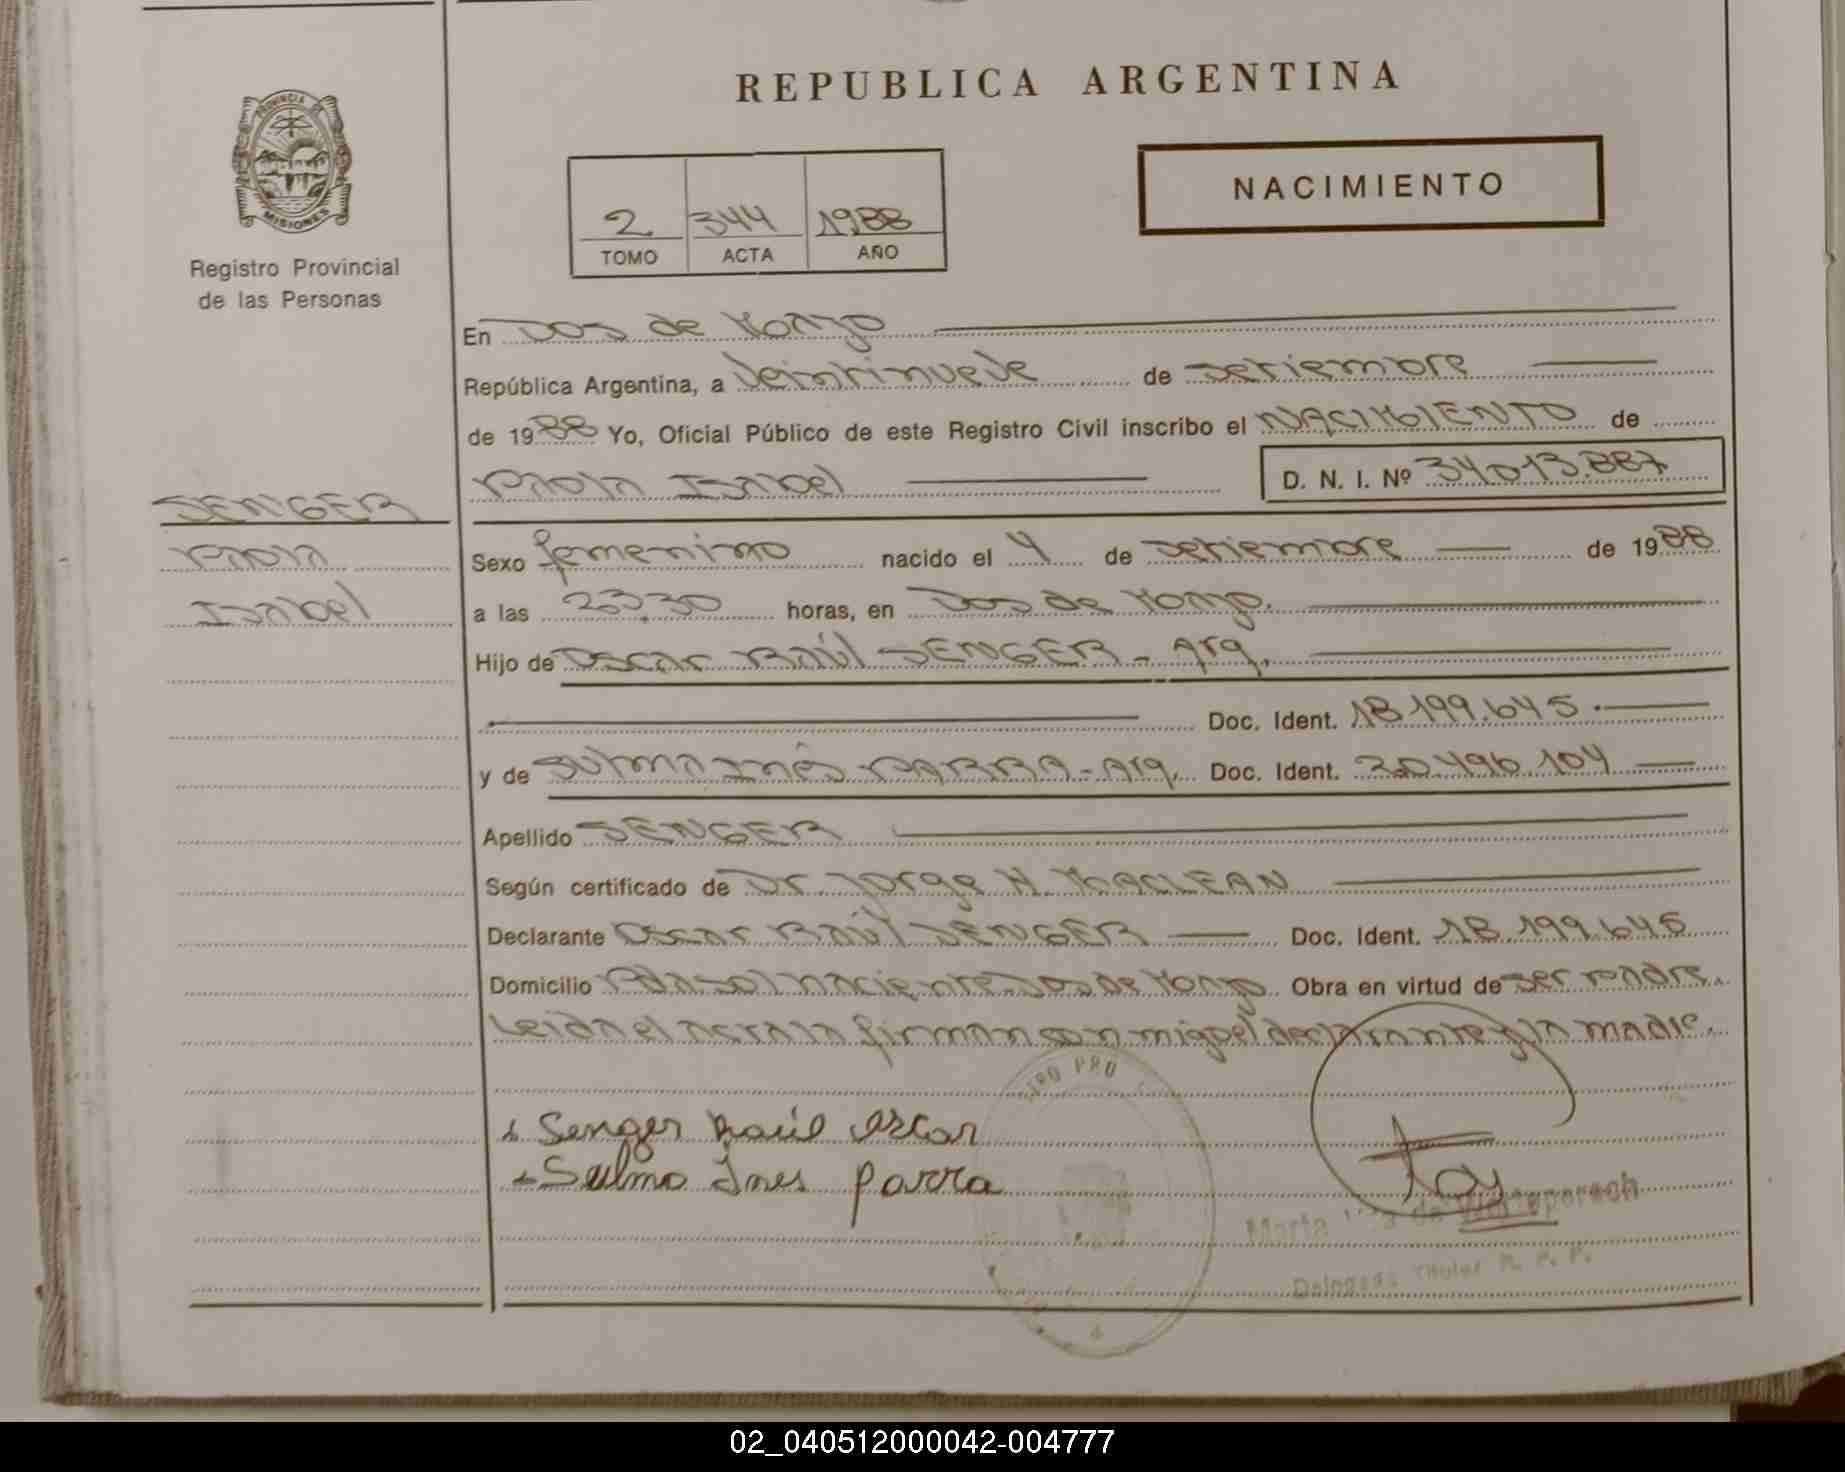 REPUBLICA ARGENTINA
PROVINCIA DE
MISIONES
Registro Provincial
de las Personas
2 344 1988
TOMO ACTA AÑO
NACIMIENTO
En Dos de Mayo
República Argentina, a Veintinueve de Setiembre
de 1988 Yo, Oficial Público de este Registro Civil inscribo el NACIMIENTO de
Paola Isabel D. N. I. Nº 34013.887
SENGER
Paola
Isabel
Sexo femenino nacido el 4 de Setiembre de 1988
a las 23.30 horas, en Dos de Mayo.
Hijo de Oscar Raúl SENGER - Arg.
Doc. Ident. 18.199.645.
y de Sulma Inés PARRA - Arg. Doc. Ident. 20.496.104
Apellido SENGER
Según certificado de Dr. Jorge H. MACLEAN
Declarante Oscar Raúl SENGER Doc. Ident. 18.199.645
Domicilio naciente Dos de Mayo Obra en virtud de ser padre.
Leida el acta la firman con migo el declarante y la madre.
Senger Raúl Oscar
Sulma Ines Parra
Marta de
Delegada Titular R. P. P.
02_040512000042-004777